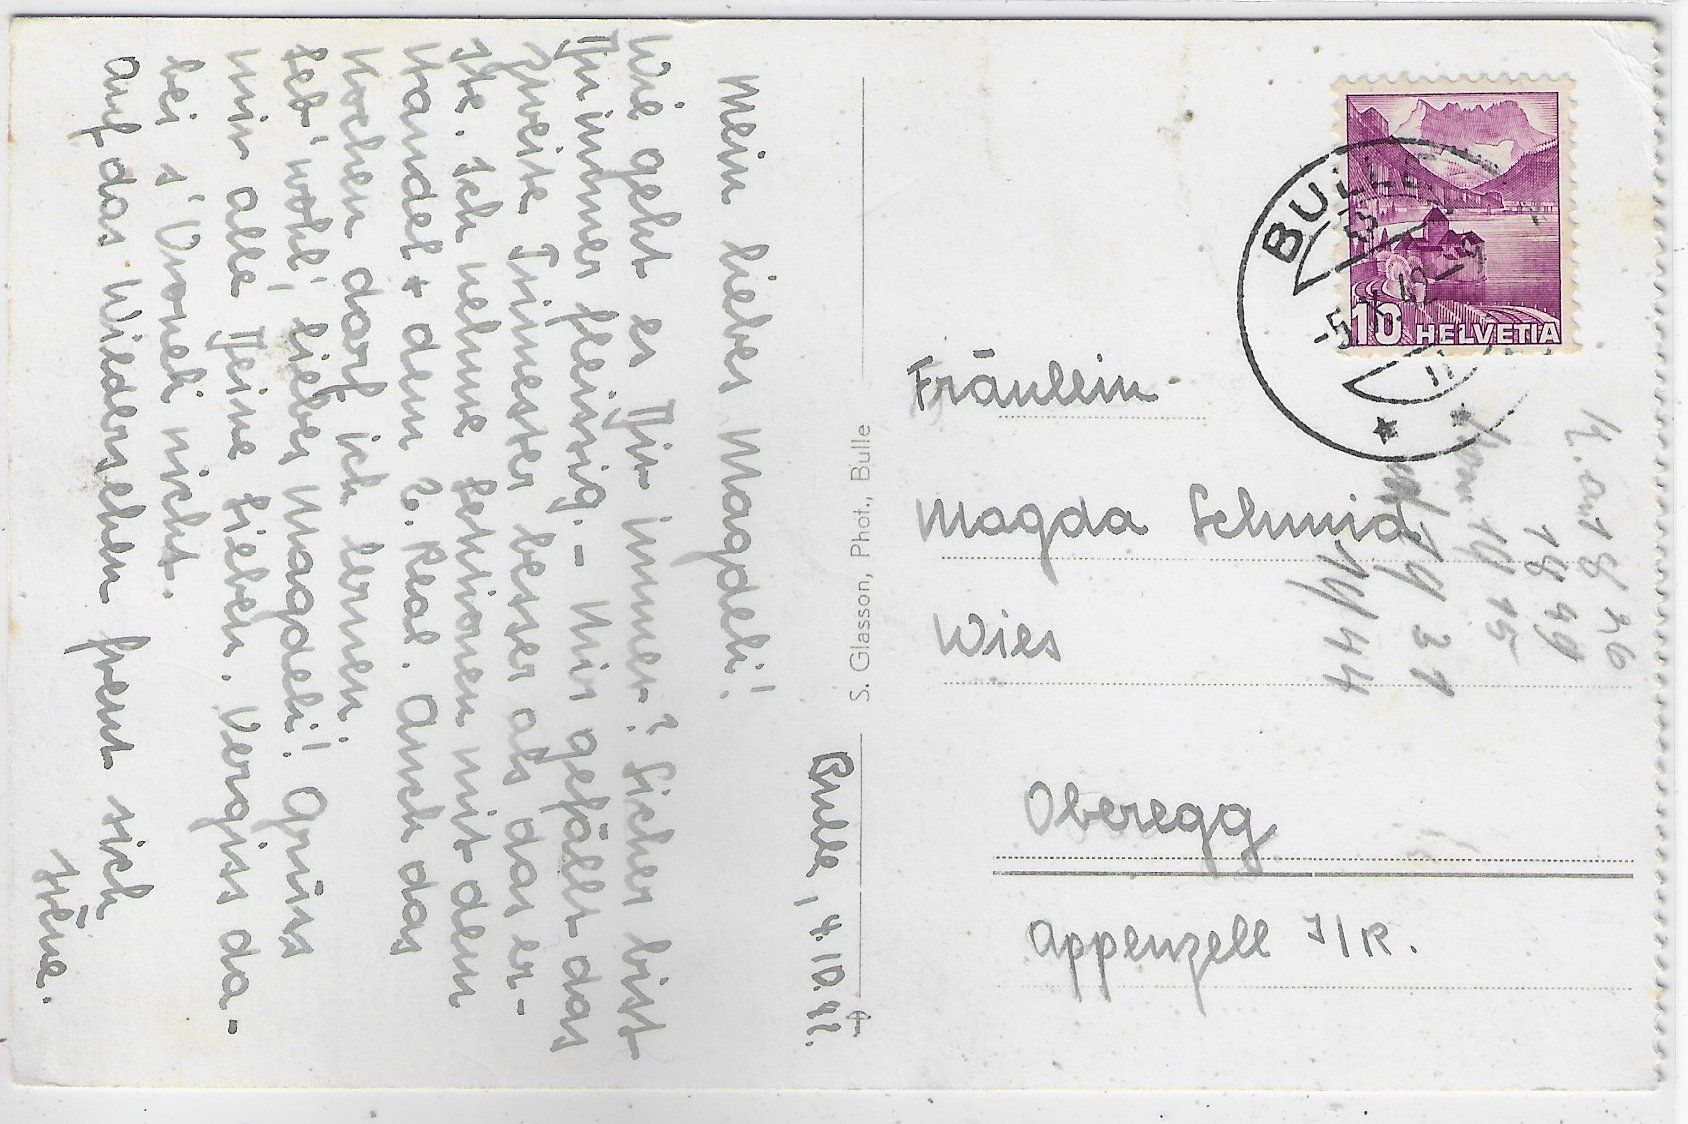 Bulle, 4.10.42.
Mein liebes Magdeli!
Wie geht es Dir immer? Sicher bist
Du immer fleissig. – Mir gefällt das
Zweite Trimester besser als das er-
ste. Ich nehme Lektionen mit dem
Handel + dem 2. Real. Auch das
Kochen darf ich lernen.
Leb' wohl, liebes Magdeli! Grüss
mir alle Deine Lieben. Vergiss da-
bei s'Vroneli nicht.
Auf das Wiedersehen freut sich
S. Glasson, Phot., Bulle
BULLE
-5.X.42
10 HELVETIA
Fräullein
Magda Schmid
Wies
Oberegg
Appenzell I/R.
18 49
19 15
19 31
19 44